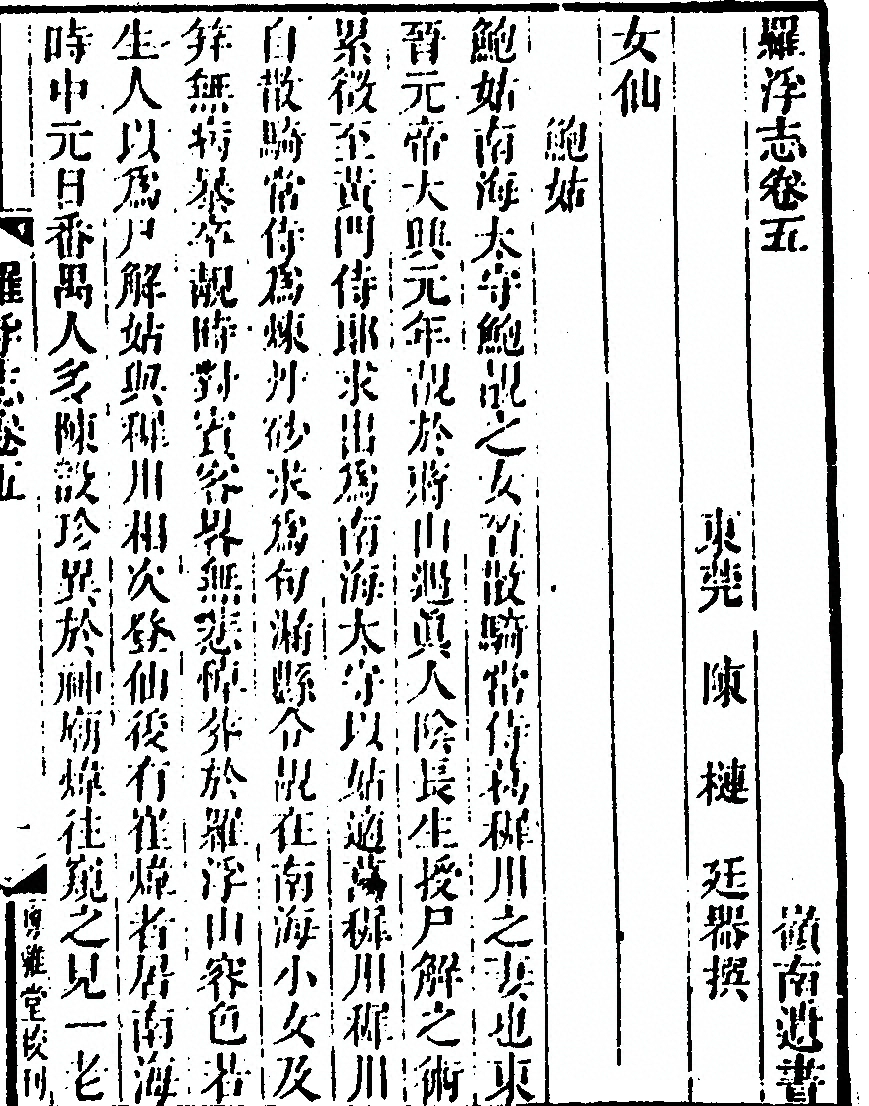 羅浮志卷五　嶺南遺書
東莞　陳　槤　廷器撰
女仙
鮑姑
鮑姑南海太守鮑靚之女晉散騎常侍葛穉川之妻也東
晉元帝大興元年靚於蔣山遇眞人陰長生授尸解之術
累徵至黃門侍郎求出爲南海太守以姑適葛穉川穉川
自散騎常侍爲煉丹砂求爲句漏縣令靚在南海小女及
笄無病暴卒靚時對賓客畧無悲悼葬於羅浮山容色若
生人以爲尸解姑與穉川相次登仙後有崔煒者居南海
時中元日番禺人多陳設珍異於神廟煒往窺之見一老
羅浮志卷五　一　粤雅堂校刊